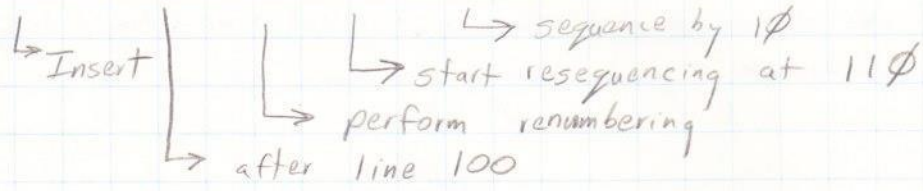 sequence by 1Ø
Insert
start resequencing at 11Ø
perform renumbering
after line 100